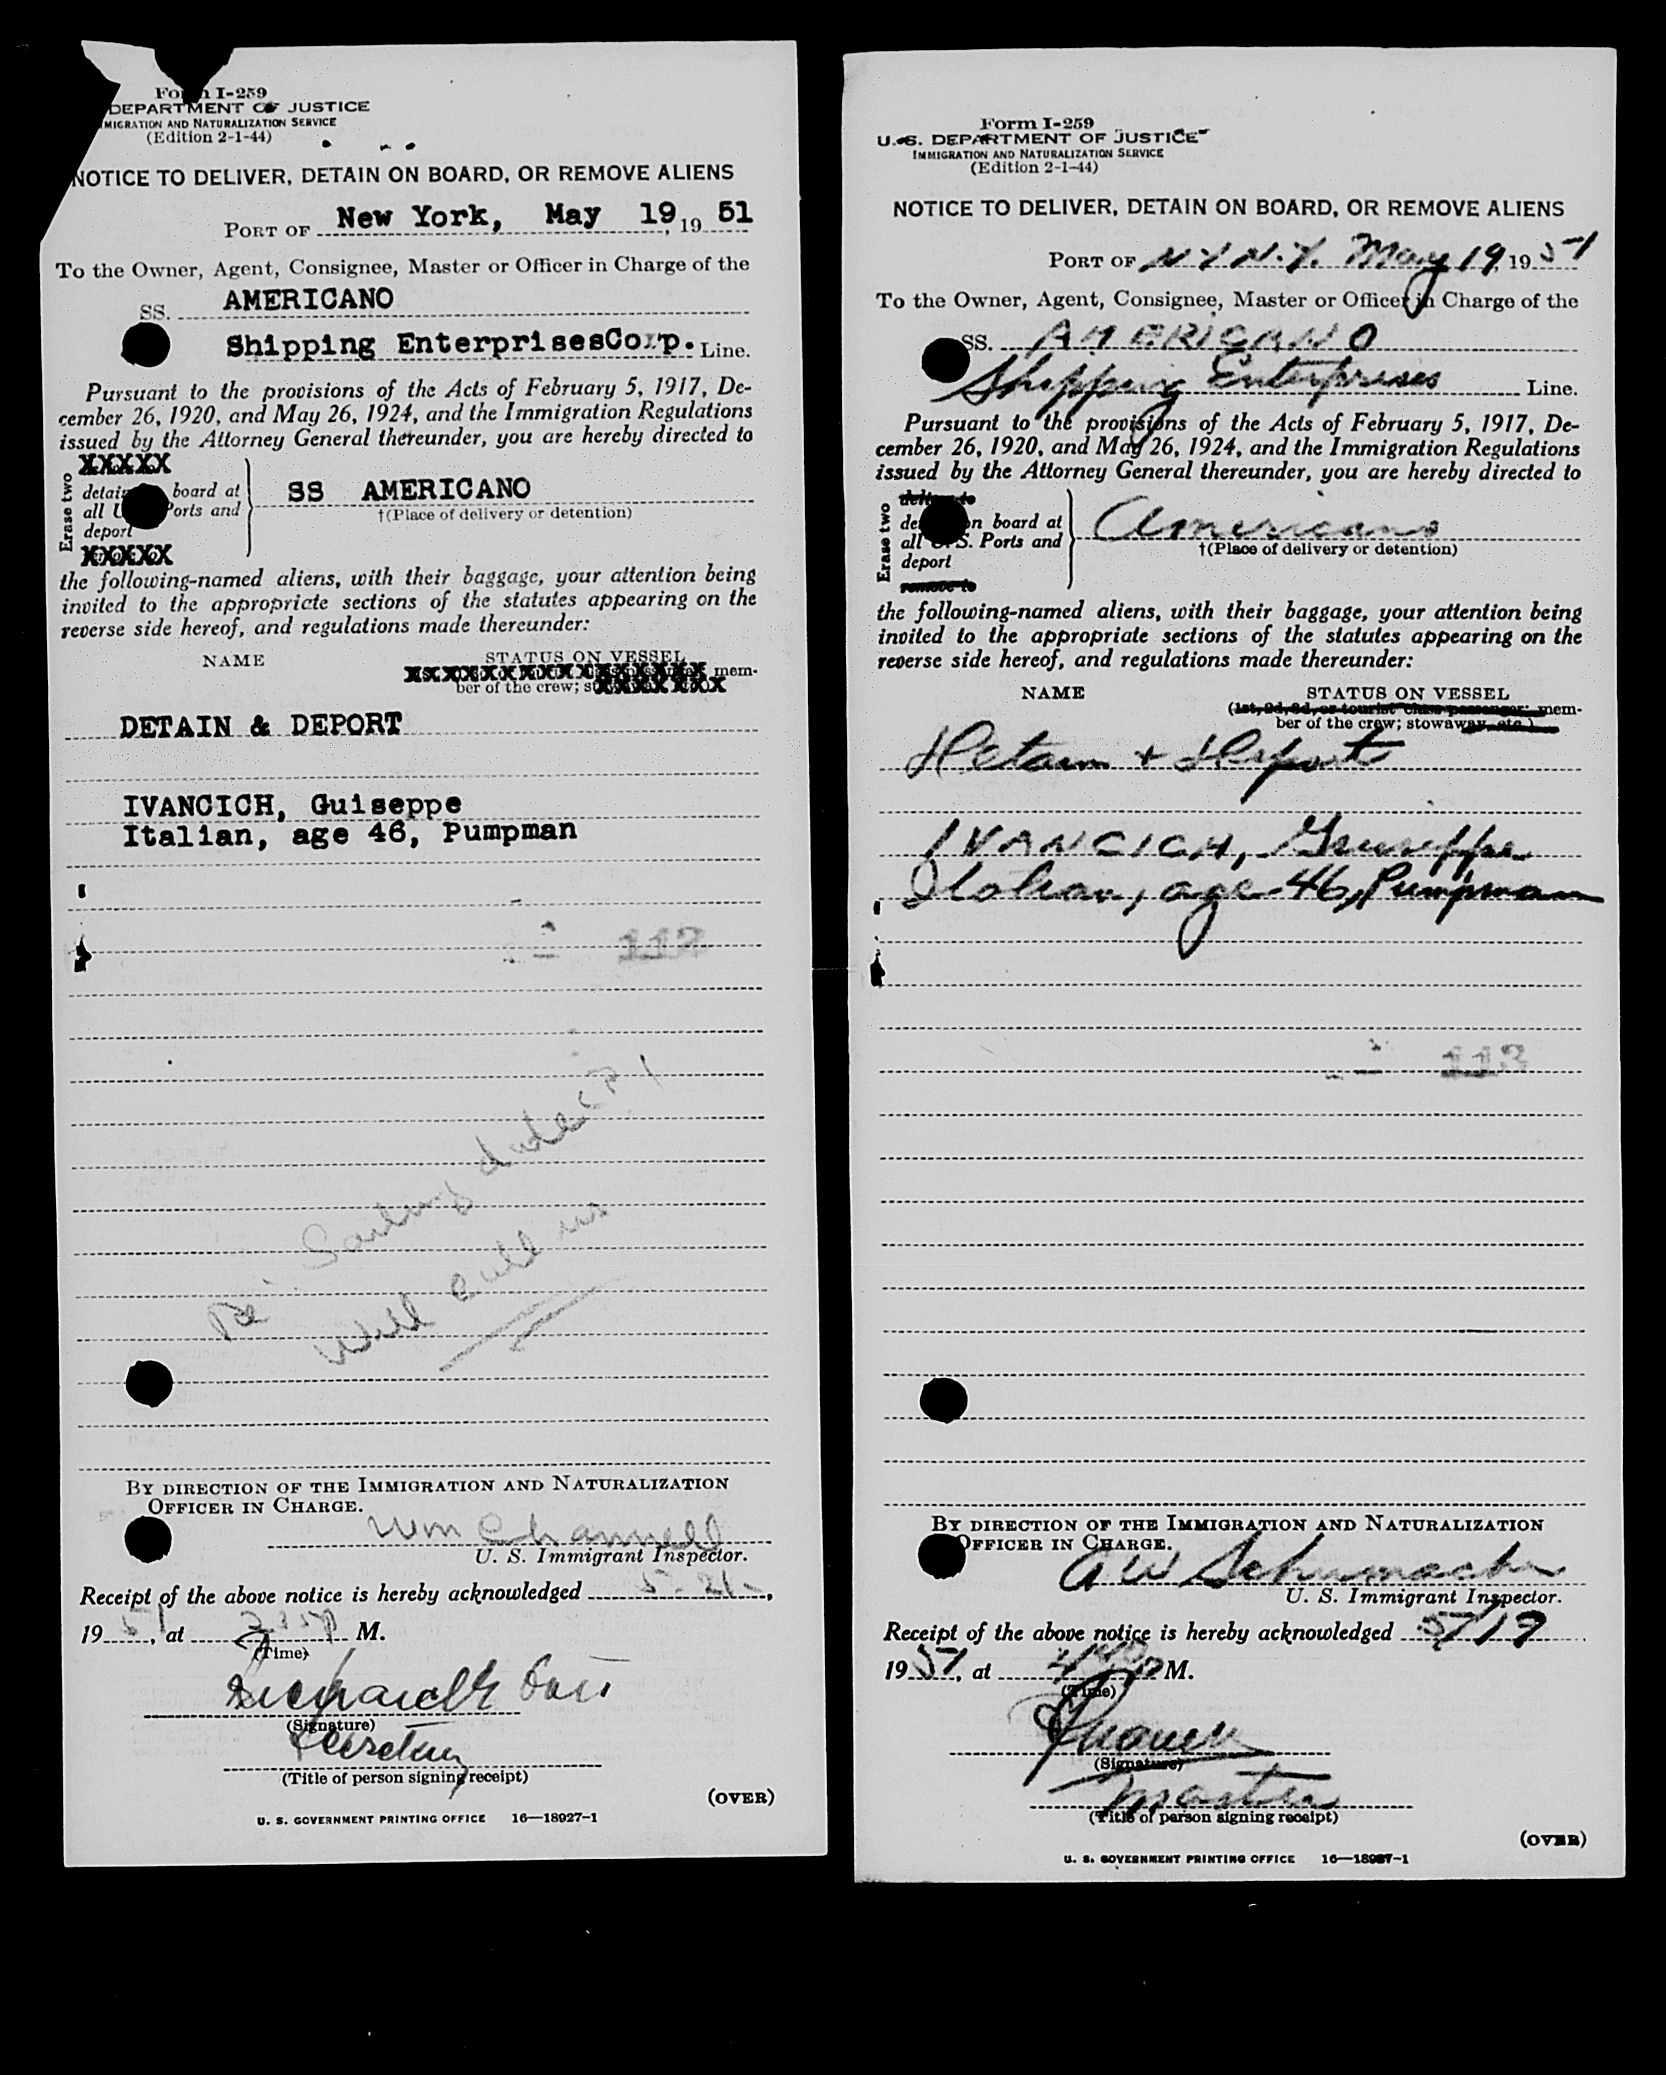 Form I-259
DEPARTMENT OF JUSTICE
IMMIGRATION AND NATURALIZATION SERVICE
(Edition 2-1-44)
NOTICE TO DELIVER, DETAIN ON BOARD, OR REMOVE ALIENS
PORT OF New York, May 19, 19 51
To the Owner, Agent, Consignee, Master or Officer in Charge of the
SS. AMERICANO
Shipping EnterprisesCorp. Line.
Pursuant to the provisions of the Acts of February 5, 1917, De-
cember 26, 1920, and May 26, 1924, and the Immigration Regulations
issued by the Attorney General thereunder, you are hereby directed to
XXXXX
Erase two
detain board at
all U Ports and
deport
XXXXX
SS AMERICANO
†(Place of delivery or detention)
the following-named aliens, with their baggage, your attention being
invited to the appropriate sections of the statutes appearing on the
reverse side hereof, and regulations made thereunder:
NAME STATUS ON VESSEL
mem-
ber of the crew;
DETAIN & DEPORT
IVANCICH, Guiseppe
Italian, age 46, Pumpman
Re: Sailing
Will call
BY DIRECTION OF THE IMMIGRATION AND NATURALIZATION
OFFICER IN CHARGE.
Wm Channell
U. S. Immigrant Inspector.
Receipt of the above notice is hereby acknowledged 5-21-,
19 51, at M.
(Time)
(Signature)
Secretary
(Title of person signing receipt)
(OVER)
U. S. GOVERNMENT PRINTING OFFICE 16—18927-1
Form I-259
U. S. DEPARTMENT OF JUSTICE
IMMIGRATION AND NATURALIZATION SERVICE
(Edition 2-1-44)
NOTICE TO DELIVER, DETAIN ON BOARD, OR REMOVE ALIENS
PORT OF N Y N.Y. May 19, 19 51
To the Owner, Agent, Consignee, Master or Officer in Charge of the
SS. AMERICANO
Shipping Enterprises Line.
Pursuant to the provisions of the Acts of February 5, 1917, De-
cember 26, 1920, and May 26, 1924, and the Immigration Regulations
issued by the Attorney General thereunder, you are hereby directed to
deliver to
Erase two
de n board at
all U. S. Ports and
deport
remove to
Americano
†(Place of delivery or detention)
the following-named aliens, with their baggage, your attention being
invited to the appropriate sections of the statutes appearing on the
reverse side hereof, and regulations made thereunder:
NAME STATUS ON VESSEL
(1st, 2d, 3d, or tourist class passenger; mem-
ber of the crew; stowaway, etc.)
Detain + Deport
IVANCICH, Giuseppe
Italian, age 46, Pumpman
BY DIRECTION OF THE IMMIGRATION AND NATURALIZATION
OFFICER IN CHARGE.
A W Schumacher
U. S. Immigrant Inspector.
Receipt of the above notice is hereby acknowledged 5/19
19 51, at M.
(Time)
(Signature)
Master
(Title of person signing receipt)
(OVER)
U. S. GOVERNMENT PRINTING OFFICE 16—18927-1